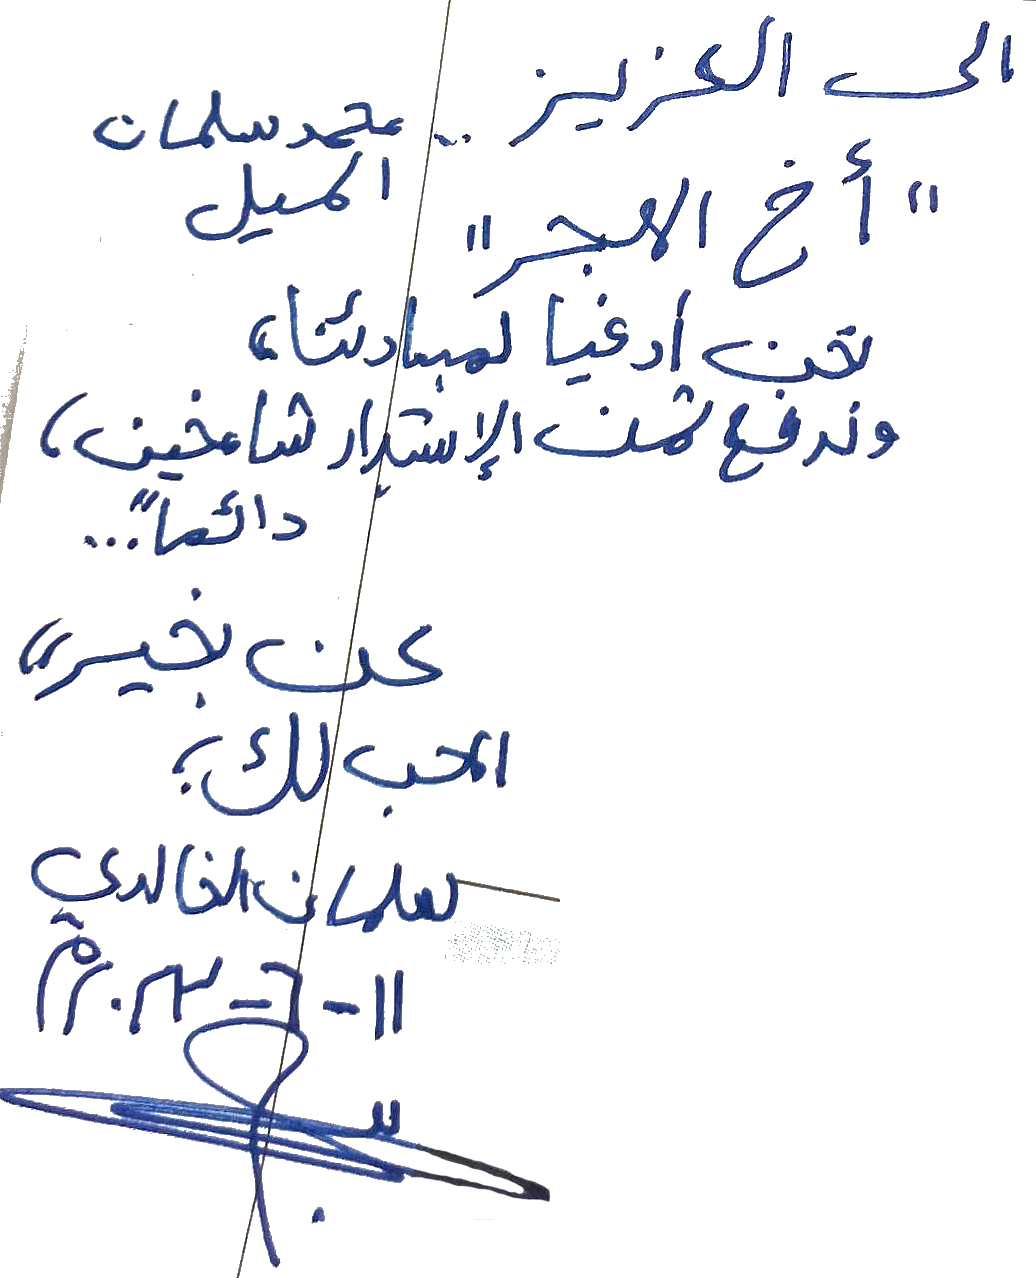 الى العزيز .. محمد سلمان
"أخ الهجر"
نحن أوفيا لمبادئنا،
وندفع ثمن الإستدار شامخين،
دائماً...
نحن بخير،،
المحب لك؛
سلمان الخالدي
١١-٦-٢٠٢٣م